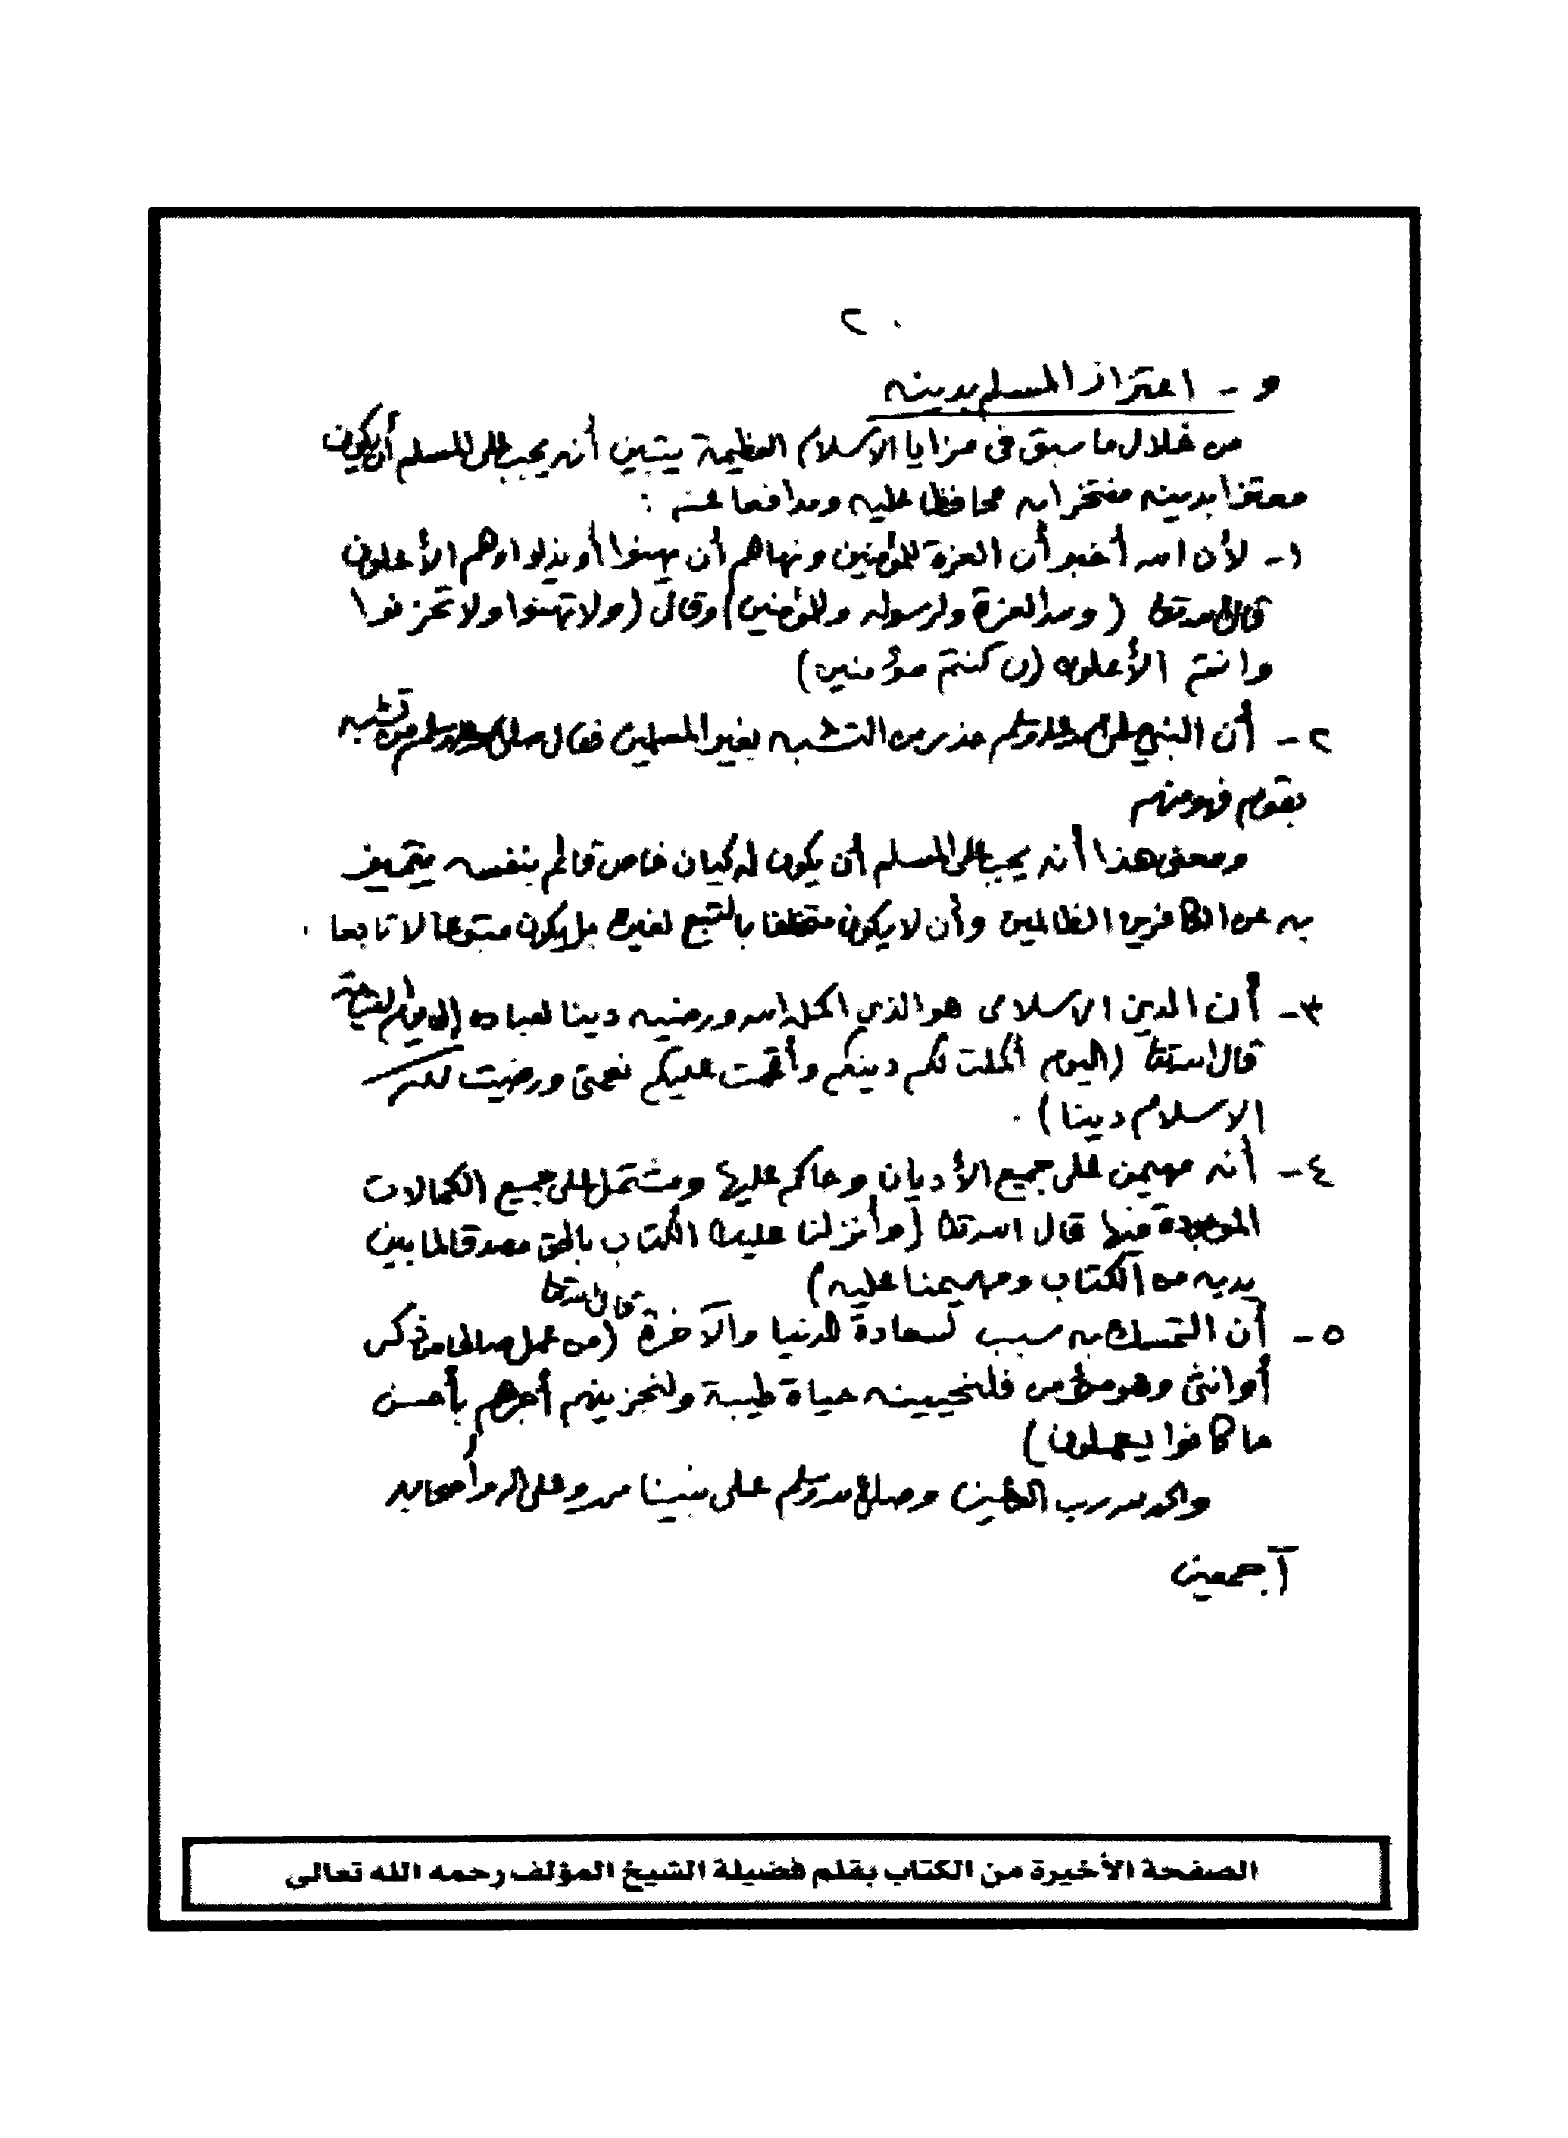 ٢٠
و - اعتزاز المسلم بدينه
من خلال ما سبق في مزايا الاسلام العظيمة يتبين أنه يجب على المسلم أن يكون
معتزا بدينه مفتخرا به محافظا عليه ومدافعا عنه :
١- لأن الله أخبر أن العزة للمؤمنين ونهاهم أن يهنوا أو يذلوا وهم الأعلون
قال الله تعالى ( ولله العزة ولرسوله وللمؤمنين) وقال (ولا تهنوا ولا تحزنوا
وانتم الأعلون إن كنتم مؤمنين)
٢- أن النبي صلى الله عليه وسلم حذر من التشبه بغير المسلمين فقال صلى الله عليه وسلم من تشبه
بقوم فهو منهم
ومعنى هذا أنه يجب على المسلم أن يكون له كيان خاص قائم بنفسه يتميز
به عن الكافرين الظالمين وأن لا يكون متعلقا بالتبع لغيره بل يكون متبوعا لا تابعا .
٣- أن الدين الاسلامي هو الذي اكمله الله ورضيه دينا لعباده إلى يوم القيامة
قال الله تعالى (اليوم أكملت لكم دينكم وأتممت عليكم نعمتي ورضيت لكم
الاسلام دينا) .
٤- أنه مهيمن على جميع الأديان وحاكم عليها ومشتمل على جميع الكمالات
الموجودة فيها قال الله تعالى (وأنزلنا عليك الكتاب بالحق مصدقا لما بين
يديه من الكتاب ومهيمنا عليه)
٥- أن التمسك به سبب لسعادة الدنيا والآخرة قال الله تعالى (من عمل صالحا من ذكر
أو انثى وهو مؤمن فلنحيينه حياة طيبة ولنجزينهم أجرهم بأحسن
ما كانوا يعملون)
والحمد لله رب العالمين وصلى الله وسلم على نبينا محمد وعلى اله وأصحابه
أجمعين
الصفحة الأخيرة من الكتاب بقلم فضيلة الشيخ المؤلف رحمه الله تعالى